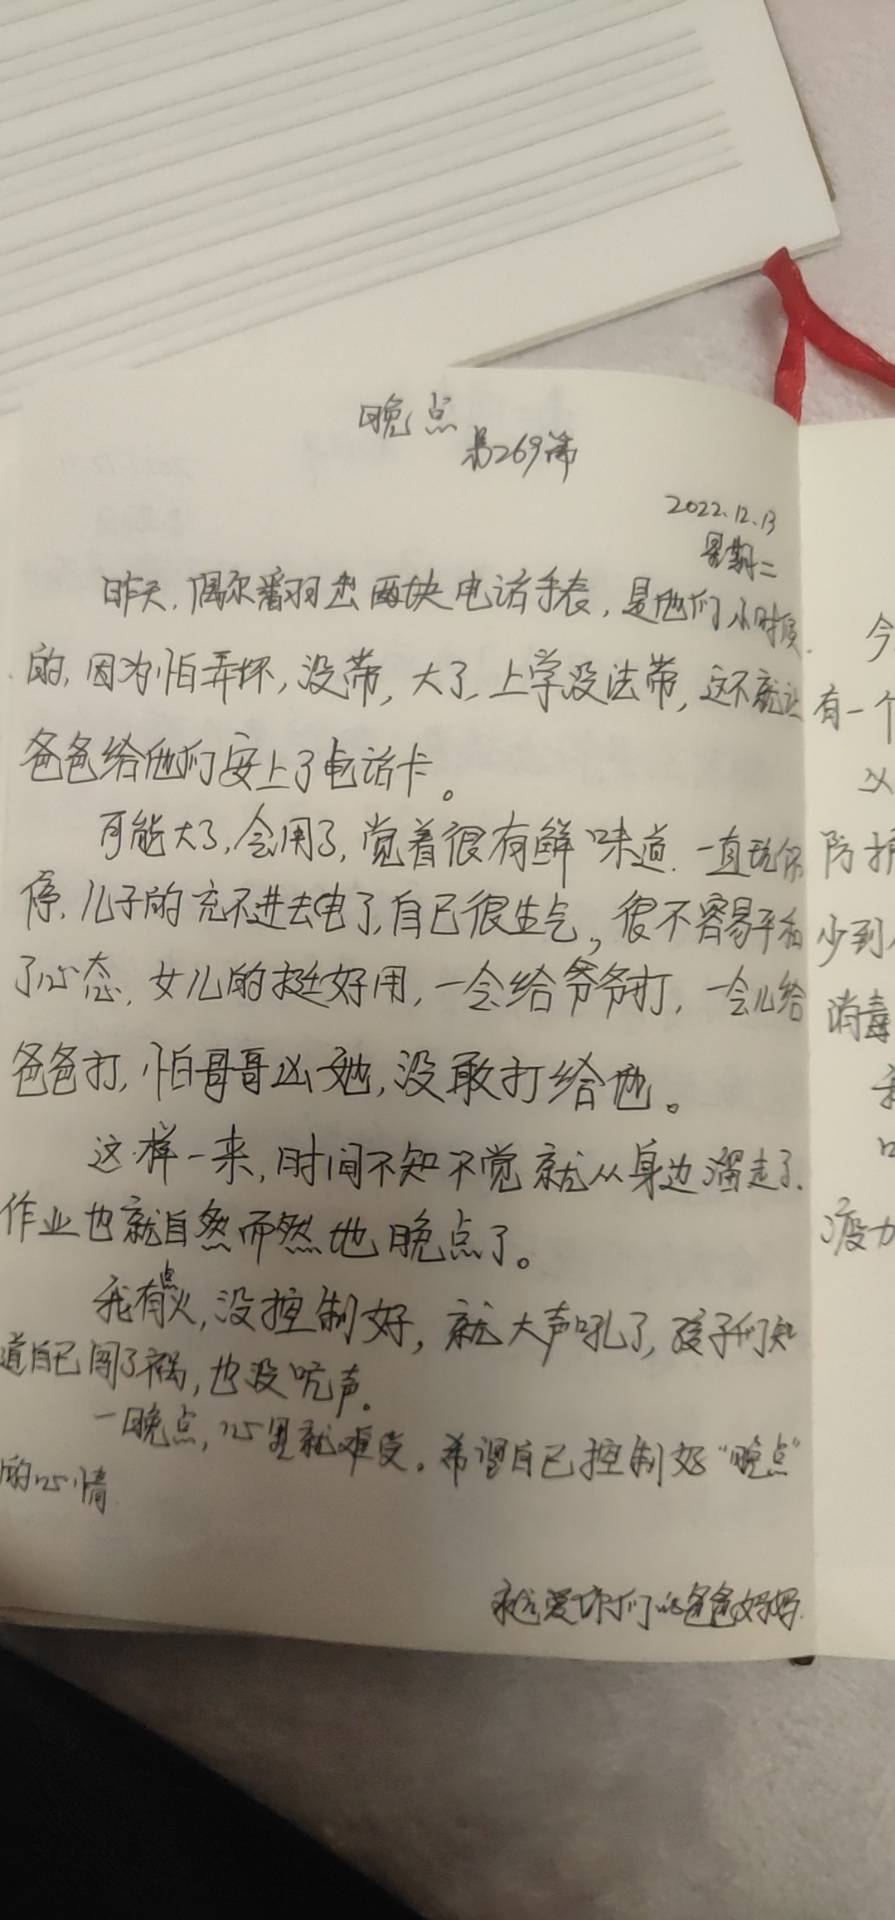 晚点
第269篇
2022.12.13
星期二
昨天,偶尔翻出两块电话手表,是他们小时候
的,因为怕弄坏,没带,大了,上学没法带,这不就让
爸爸给他们安上了电话卡。
可能大了,会用了,觉着很有鲜味道.一直玩
停.儿子的充不进去电了,自己很生气,很不容易平和
了心态,女儿的挺好用,一会给爷爷打,一会儿给
爸爸打,怕哥哥凶她,没敢打给他。
这样一来,时间不知不觉就从身边溜走了.
作业也就自然而然地晚点了。
我有点火,没控制好,就大声吼了,孩子们知
道自己闯了祸,也没吭声.
一晚点,心里就难受。希望自己控制好“晚点”
的心情
永远爱你们的爸爸妈妈.
今
有一个
义
防护
少到
消毒
疫力